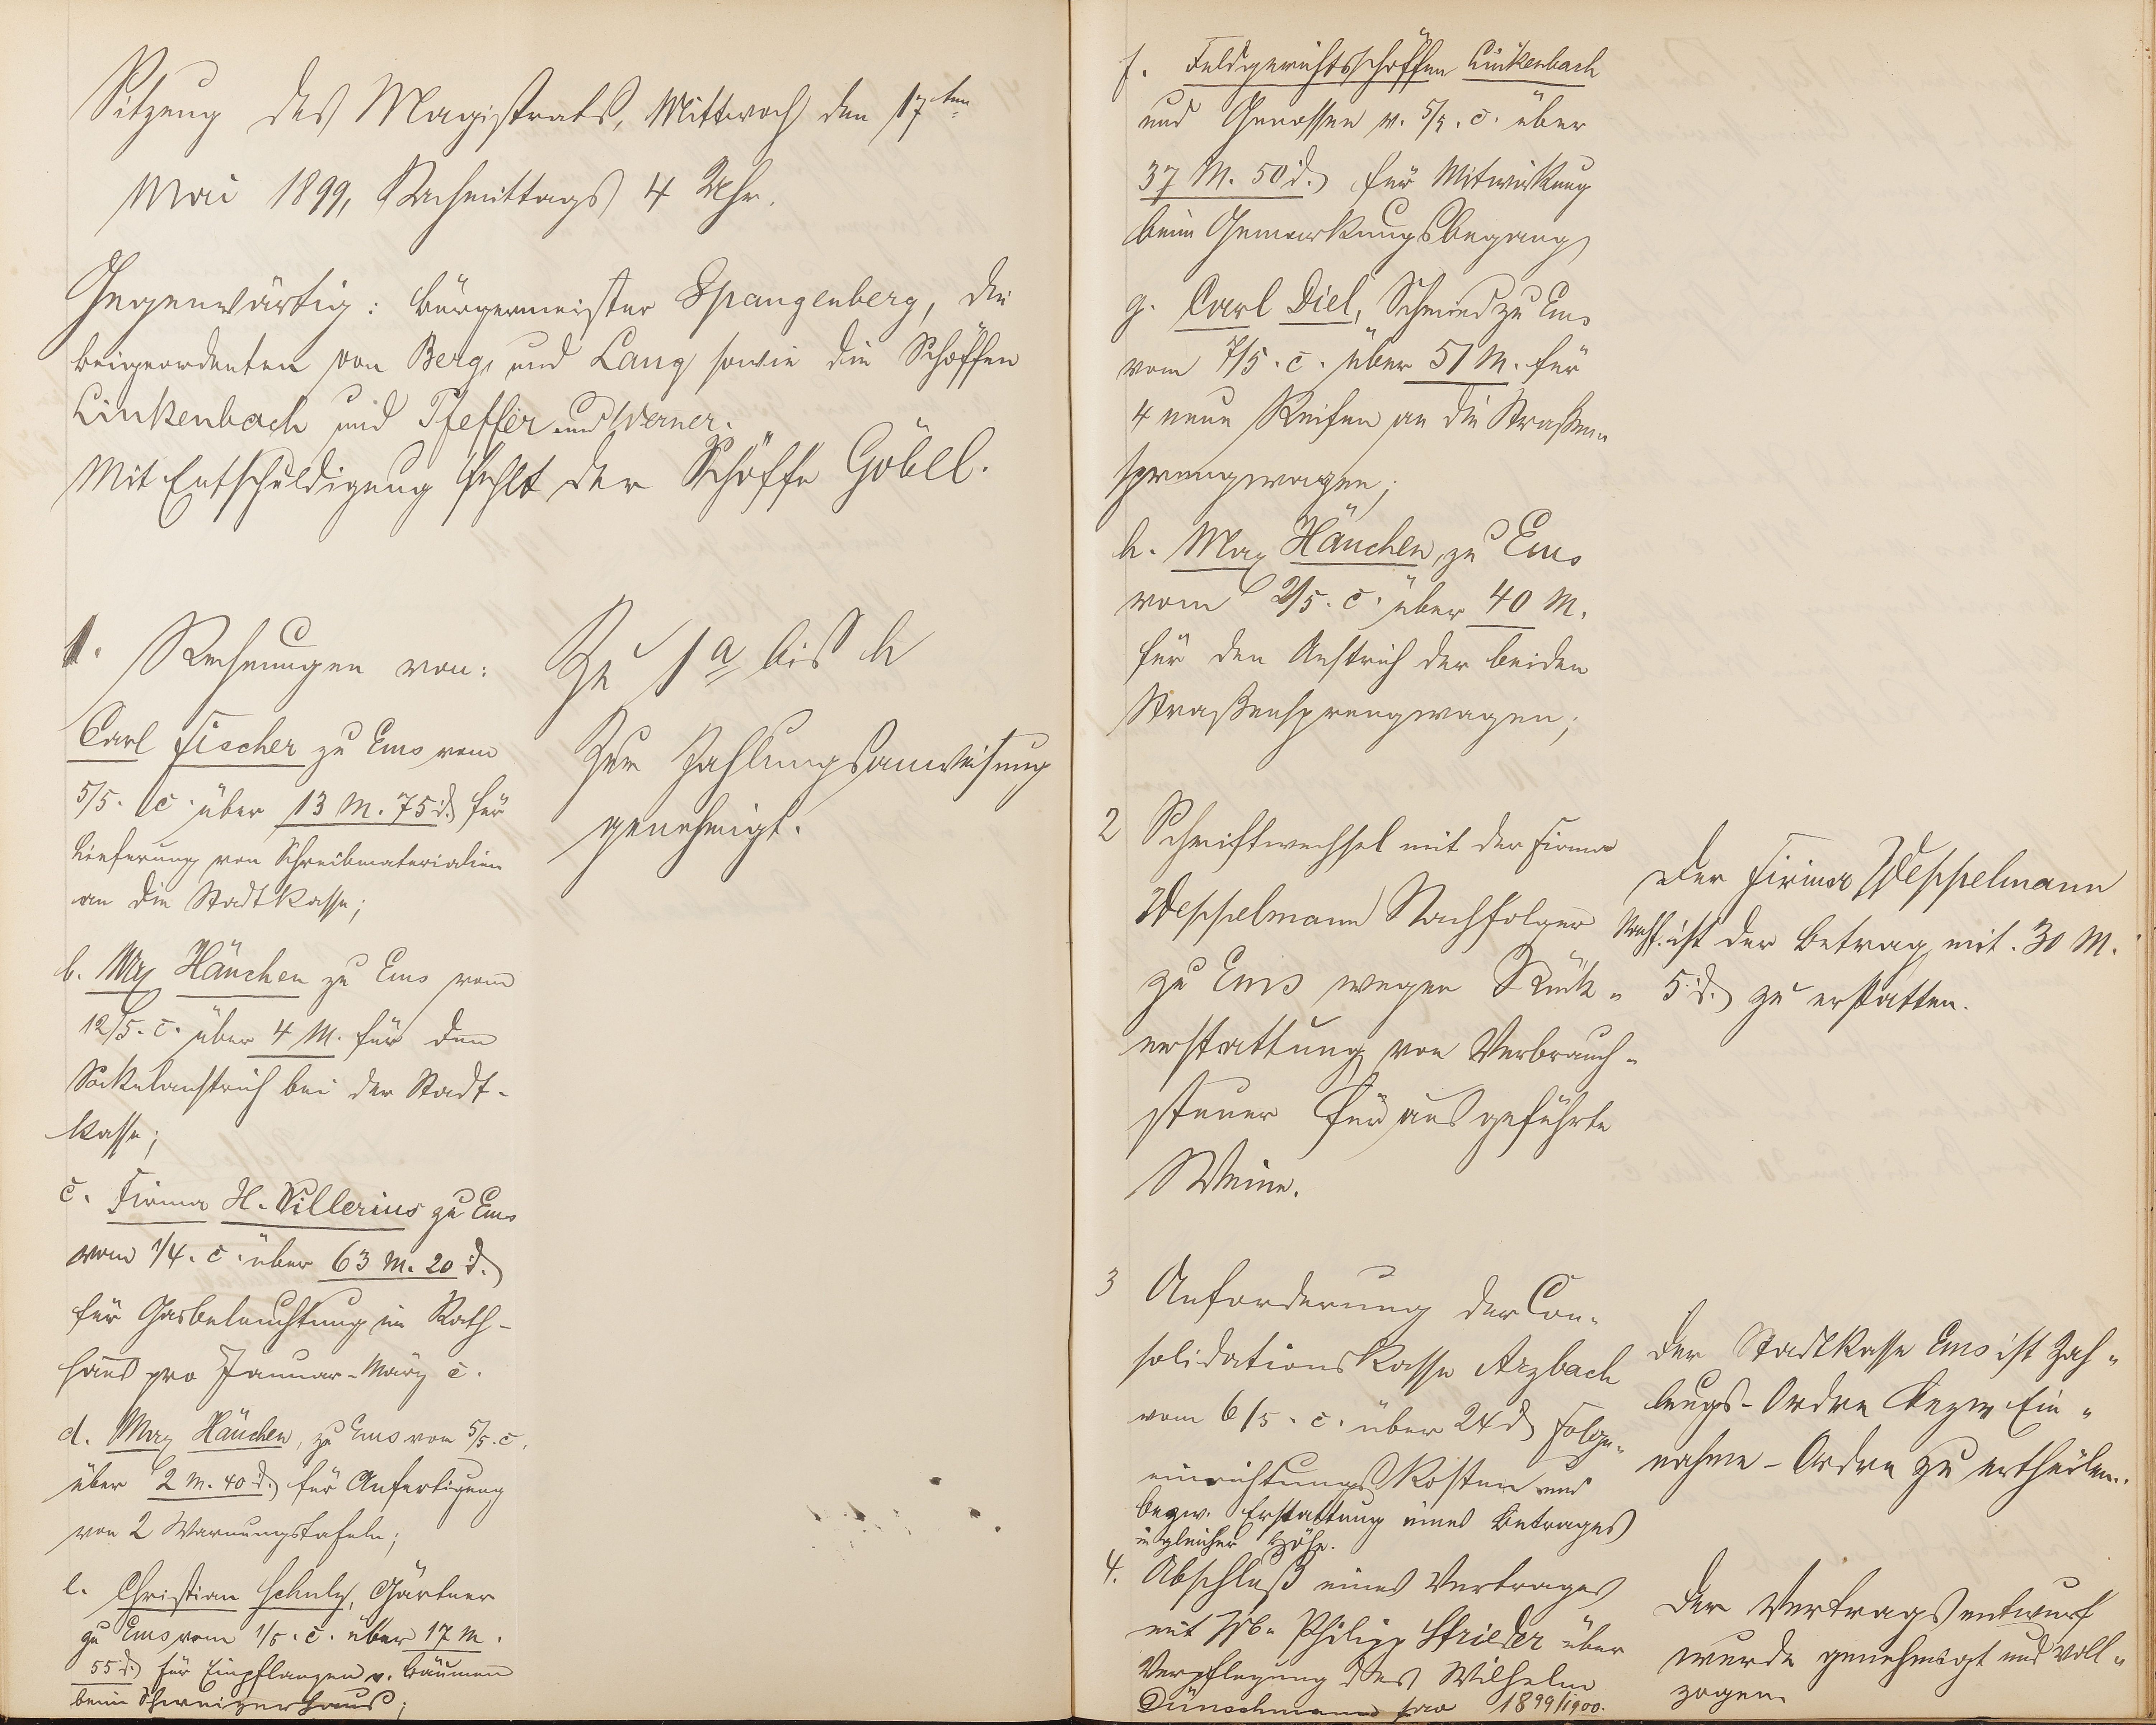 Sitzung des Magistrats, Mittwoch den 17ten
Mai 1899, Nachmittags 4 Uhr.
Gegenwärtig: Bürgermeister Spangenberg, die
Beigeordneten von Berg und Lang sowie die Schöffen
Linkenbach und Pfeffer und Werner.
Mit Entschuldigung fehlt der Schöffe Göbel.
1. Rechnungen von:
Carl Fischer zu Ems vom
5/5. c. über 13 M. 75 d. für
Lieferung von Schreibmaterialien
an die Stadtkasse;
b. Max Häuchen zu Ems vom
12/5. c. über 4 M. für den
Sockelanstrich bei der Stadt-
kasse;
c. Firma H. Villerius zu Ems
vom 1/4. c. über 63 M. 20 d.
für Gasbeleuchtung im Rath-
haus pro Januar-März c.
d. Max Häuchen, zu Ems vom 5/5. c.
über 2 M. 40 d. für Anfertigung
von 2 Warnungstafeln;
e. Christian Schulz, Gärtner
zu Ems vom 1/5. c. über 17 M.
55 d. für Einpflanzen v. Bäumen
beim Schweizerhaus;
Zu 1 a bis h
Zur Zahlungsanweisung
genehmigt.
f. Feldgerichtsschöffen Linkenbach
und Genossen v. 5/5. c. über
37 M. 50 d. für Mitwirkung
beim Gemarkungsbegang
g. Carl Diel, Schmied zu Ems
vom 7/5. c. über 51 M. für
4 neue Reifen an die Straßen-
sprengwagen;
h. Max Häuchen, zu Ems
vom 2/5. c. über 40 M.
für den Anstrich der beiden
Straßensprengwagen;
2 Schriftwechsel mit der Firma
Weppelmann Nachfolger
zu Ems wegen Rück-
erstattung von Verbrauch-
steuer für ausgeführte
Weine.
Der Firma Weppelmann
Nachf. ist der Betrag mit 30 M.
5 d. zu erstatten.
3 Anforderung der Con-
solidationskasse Arzbach
vom 6/5. c. über 24 d Folge-
einrichtungskosten und
bezw. Erstattung eines Betrages
in gleicher Höhe.
Der Stadtkasse Ems ist Zah-
lungs-Ordre bezw Ein-
nahme-Ordre zu ertheilen.
4. Abschluß eines Vertrages
mit Wb. Philipp Strieder über
Verpflegung des Wilhelm
Dünschmann pro 1899/1900.
Der Vertragsentwurf
wurde genehmigt und voll-
zogen.